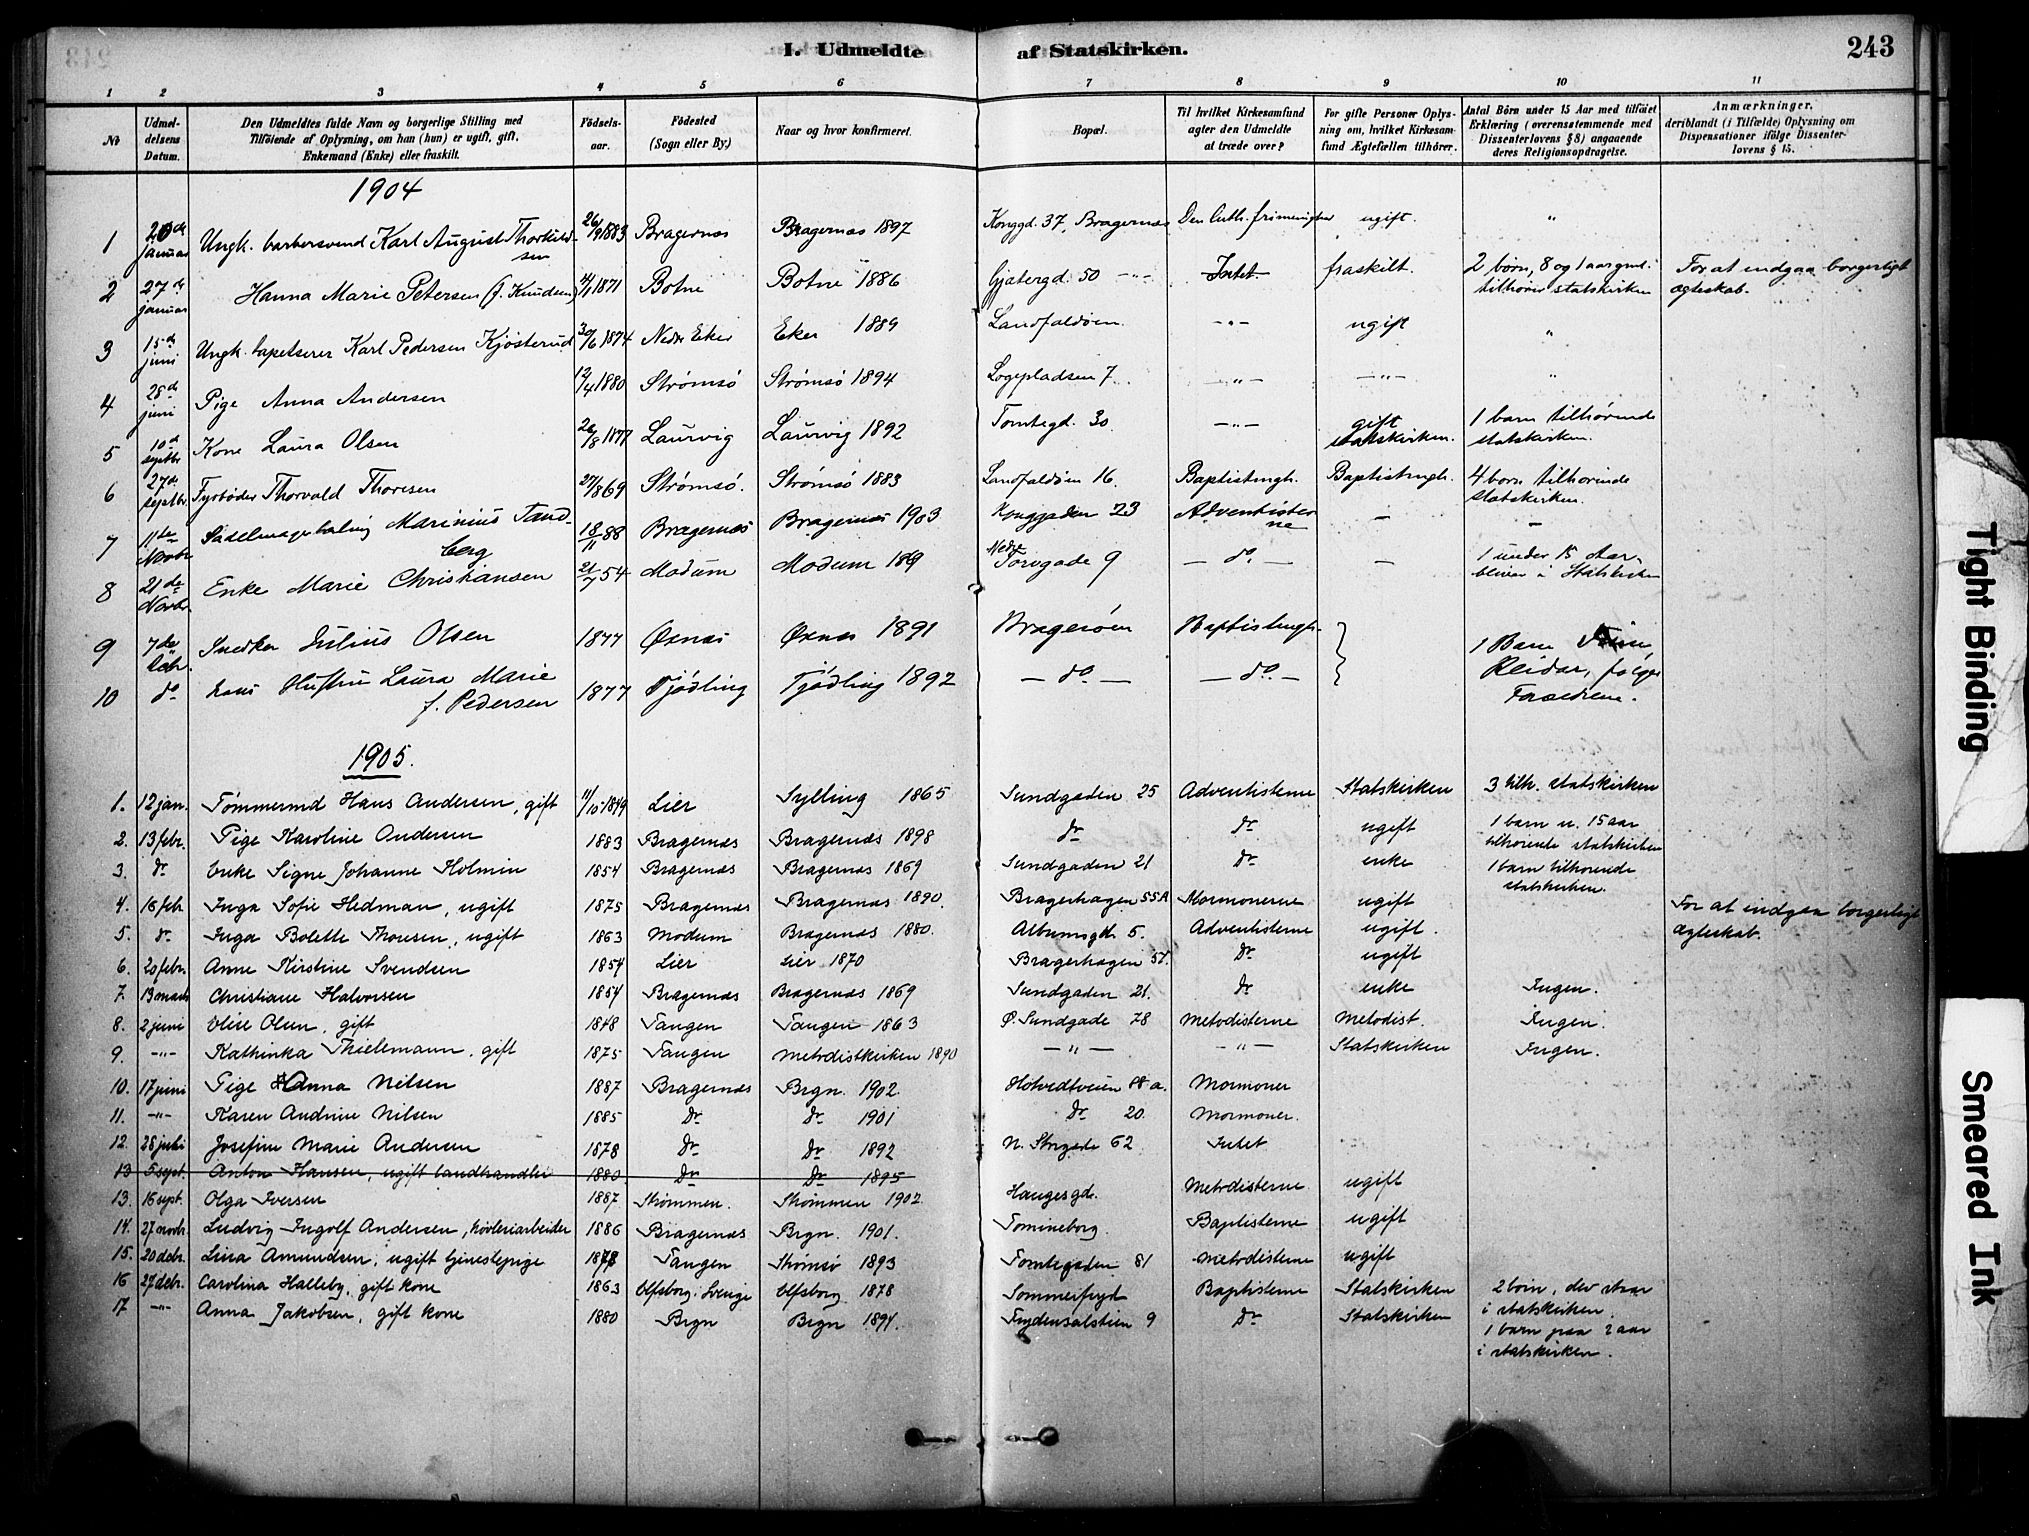 I. Udmeldte af Statskirken. 243
1 2 3 4 5 6 7 8 9 10 11
№ Udmel-delsens Datum. Den Udmeldtes fulde Navn og borgerlige Stilling med Tilföiende af Oplysning, om han (hun) er ugift, gift, Enkemand (Enke) eller fraskilt. Födsels-aar. Födested (Sogn eller By.) Naar og hvor konfirmeret. Bopæl. Til hvilket Kirkesamfund agter den Udmeldte at træde over? For gifte Personer Oplys-ning om, hvilket Kirkesam-fund Ægtefællen tilhörer. Antal Börn under 15 Aar med tilföiet Erklæring (overensstemmende med Dissenterlovens § 8) angaaende deres Religionsopdragelse. Anmærkninger, deriblandt (i Tilfælde) Oplysning om Dispensationer ifölge Dissenter-lovens § 15.
1904
1 20de januar Ungk. barbersvend Karl August Thorkild-sen 26/9 1883 Bragernæs Bragernæs 1897 Konggd. 37, Bragernæs Den luth. frimenighed ugift. "
2 27de januar Hanna Marie Petersen (f. Knudsen) 4/1 1871 Botne Botne 1886 Gjetergd. 50 -"- Intet fraskilt. 2 børn, 8 og 1 aar gml. tilhører statskirken For at indgaa borgerligt ægteskab.
3 15de juni Ungk. tapetserer Karl Pedersen Kjøsterud 30/6 1874 Nedre Eker Eker 1889 Landfaldøen. -"- ugift "
4 28de juni Pige Anna Andersen 12/4 1880 Strømsø Strømsø 1894 Løgepladsen 7. -"- -"- "
5 10de septbr Kone Laura Olsen 26/8 1877 Laurvig Laurvig 1892 Tomtegd. 30 -"- gift statskirken. 1 barn tilhørende statskirken.
6 27de septbr. Fyrbøder Thorvald Thoresen 27/8 69 Strømsø. Strømsø 1883 Landfaldøen 16. Baptistmgh. Baptistmgh. 4 børn tilhørende statskirken.
7 11te Novbr Sadelmagerlærling Marinius Tand-berg 18/11 88 Bragernæs Bragernæs 1903 Konggaden 23 Adventister-ne - -
8 21de Novbr. Enke Marie Christiansen 21/7 54 Modum Modum 189 Nedre Torvgade 9 - do. - - 1 under 15 Aar, bliver i Statskirken
9 7de Snedker Julius Olsen 1877 Øxnæs Øxnæs 1891 Bragerøen Baptistmgh. 1 Barn
10 do hans Hustru Laura Marie f. Pedersen 1877 Tjødling Tjødling 1892 - do - - do - Reidar, følger Forældrene.
1905.
1. 12 jan. Tømmermd Hans Andersen, gift 11/10 1849 Lier Sylling 1865 Sundgaden 25 Adventisterne Statskirken 3 tilh. statskirken
2. 13 febr. Pige Karoline Andersen 1883 Bragernæs Bragernæs 1898 do do ugift 1 barn u. 15 aar tilhørende statskirken
3. do Enke Signe Johanne Holmin 1854 Bragernæs Bragernæs 1869 Sundgaden 21 do enke 1 barn tilhørende statskirken.
4. 16 feb. Inga Sofie Hedman, ugift 1875 Bragernæs Bragernæs 1890. Bragerhagen 55A Mormonerne ugift For at indgaa borgerligt ægteskab.
5. do Inga Bolette Thoresen, ugift 1863 Modum Bragernæs 1880. Albumsgd. 5. Adventisterne ugift.
6. 20 febr. Anne Kirstine Svendsen 1854 Lier Lier 1870 Bragerhagen 57. do ugift
7. 13 marts Christiane Halvorsen 1854 Bragernæs Bragernæs 1869 Sundgaden 21. do enke Ingen.
8. 2 juni Elise Olsen, gift 1848 Tangen Tangen 1863 Ø. Sundgade 78 Metodisterne Metodist. Ingen.
9. -"- Kathinka Thielemann, gift 1875 Tangen Metodistkirken 1890 -"- -"- Statskirken Ingen.
10. 17 juni Pige Anna Nilsen 1887 Bragernæs Brgn. 1902. Hotvedtveien 18 a. Mormoner
11. -"- Karen Andrine Nilsen 1885 do do 1901 do 20. Mormoner.
12. 28 juli Josefine Marie Andersen 1878 do do 1892 N. Storgade 62 Intet
13 5 sept. Anton Hansen, ugift landhandler 1880 do do 1895
13. 16 sept. Olga Iversen 1887 Strømmen. Strømmen 1902. Haugesgd. Metodisterne ugift
14. 27 novb. Ludvig Ingolf Andersen, høvleriarbeider 1886 Bragernæs Brgn. 1901. Tomineborg Baptisterne ugift
15. 20 debr. Lina Amundsen, ugift tjenestepige 1878 Tangen Strømsø 1893 Tomtegaden 81 Metodisterne ugift
16 27 debr. Carolina Halleby, gift kone 1863 Elfsborg, Sverige Elfsborg 1878 Sommerfryd Baptisterne Statskirken 2 børn, der staar i statskirken.
17 -"- Anna Jakobsen, gift kone 1880 Brgn Brgn 1894. Frydensalstien 9 do Statskirken 1 barn paa 2 aar i statskirken.
Tight Binding
Smeared Ink